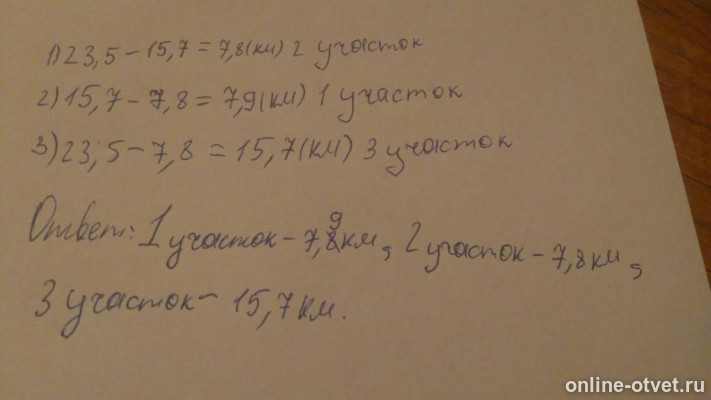 1) 23,5 - 15,7 = 7,8 (км) 2 участок
2) 15,7 - 7,8 = 7,9 (км) 1 участок
3) 23,5 - 7,8 = 15,7 (км) 3 участок
Ответ: 1 участок - 7,9 км, 2 участок - 7,8 км,
3 участок - 15,7 км.
online-otvet.ru